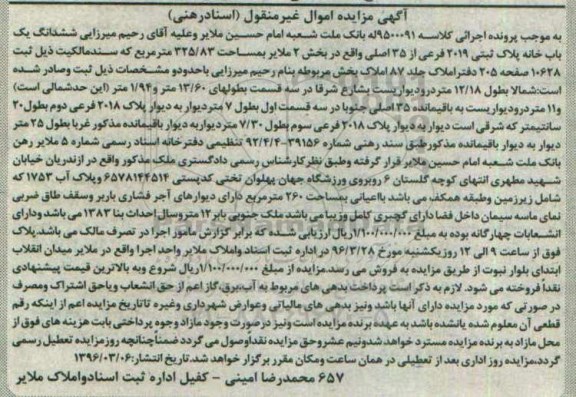 آگهی مزایده اموال غیرمنقول (اسنادرهنی)
به موجب پرونده اجرائی کلاسه ۹۵۰۰۰۹۱له بانک ملت شعبه امام حسین ملایر وعلیه آقای رحیم میرزایی ششدانگ یک
باب خانه پلاک ثبتی ۲۰۱۹ فرعی از ۳۵ اصلی واقع در بخش ۲ ملایر بمساحت ۳۲۵/۸۳ مترمربع که سندمالکیت ذیل ثبت
۱۰۶۲۸ صفحه ۲۰۵ دفتراملاک جلد ۸۷ املاک بخش مربوطه بنام رحیم میرزایی باحدودو مشخصات ذیل ثبت وصادر شده
است:شمالا بطول ۱۲/۱۸ متردرودیواریست بشارع شرقا در سه قسمت بطولهای ۱۳/۶۰ متر و۱/۹۴ متر (این حدشمالی است)
و۱۱ متردرودیواریست به باقیمانده ۳۵ اصلی جنوبا در سه قسمت اول بطول ۷ متردیوار به دیوار پلاک ۲۰۱۸ فرعی دوم بطول ۲۰
سانتیمتر که شرقی است دیوار به دیوار پلاک ۲۰۱۸ فرعی سوم بطول ۷/۳۰ متردیواربه دیوار باقیمانده مذکور غربا بطول ۲۵ متر
دیوار به دیوار باقیمانده مذکورطبق سند رهنی شماره ۳۹۱۵۶-۹۲/۴/۴ تنظیمی دفترخانه اسناد رسمی شماره ۵ ملایر رهن
بانک ملت شعبه امام حسین ملایر قرار گرفته وطبق نظرکارشناس رسمی دادگستری ملک مذکور واقع در ازندریان خیابان
شهید مطهری انتهای کوچه گلستان ۶ روبروی ورزشگاه جهان پهلوان تختی کدپستی ۶۵۷۸۱۴۴۵۱۴ وپلاک آب ۱۷۵۳ که
شامل زیرزمین وطبقه همکف، می باشد بااعیانی بمساحت ۲۶۰ مترمربع دارای دیوارهای آجر فشاری باربر وسقف طاق ضربی
نمای ماسه سیمان داخل فضا دارای گچبری کامل وزیبا می باشد ملک جنوبی بابر ۱۲ متروسال احداث بنا ۱۳۸۳ می باشد ودارای
انشعابات چهارگانه بوده به مبلغ ۱/۱۰۰/۰۰۰/۰۰۰ریال ارزیابی شده که برابر گزارش مامور اجرا در تصرف مالک می باشد،پلاک
فوق از ساعت ۹ الی ۱۲ روزیکشنبه مورخ ۹۶/۳/۲۸ در اداره ثبت اسناد واملاک ملایر واحد اجرا واقع در ملایر میدان انقلاب
ابتدای بلوار نبوت از طریق مزایده به فروش می رسد.مزایده از مبلغ ۱/۱۰۰/۰۰۰/۰۰۰ریال شروع وبه بالاترین قیمت پیشنهادی
نقدا فروخته می شود. لازم به ذکر است پرداخت بدهی های مربوط به آب،برق،گاز اعم از حق انشعاب ویاحق اشتراک ومصرف
در صورتی که مورد مزایده دارای آنها باشد ونیز بدهی های مالیاتی وعوارض شهرداری وغیره تاتاریخ مزایده اعم از اینکه رقم
قطعی آن معلوم شده یانشده باشد به عهده برنده مزایده است ونیز درصورت وجود مازاد وجوه پرداختی بابت هزینه های فوق از
محل مازاد به برنده مزایده مسترد خواهد شدونیم عشروحق مزایده نقداوصول می گردد ضمناًچنانچه روز مزایده تعطیل رسمی
گردد،مزایده روز اداری بعد از تعطیلی در همان ساعت ومکان مقرر برگزار خواهد شد.تاریخ انتشار:۱۳۹۶/۰۳/۰۶
۶۵۷ محمدرضا امینی - کفیل اداره ثبت اسنادواملاک ملایر